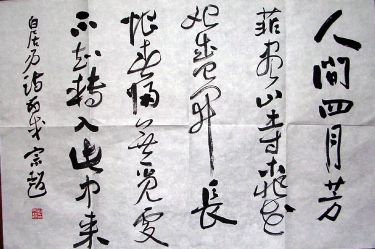 人間四月芳
菲尽山寺桃花
始盛開長
恨春歸無覓處
不知轉入此中来
白居易詩